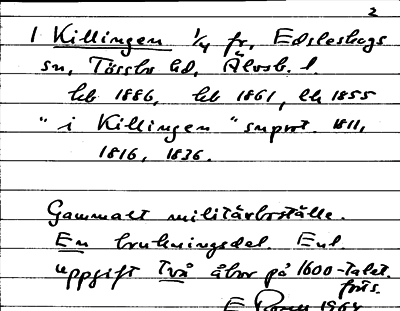 2
1 Killingen 1/4 fr, Edsleskogs
sn, Tössbo hd, Älvsb. l.
hb 1886, hb 1861, lh 1855
"i Killingen" snprot. 1811,
1816, 1836.
Gammalt militärboställe.
En brukningsdel. Enl.
uppgift två åbor på 1600-talet.
forts.
E 1964